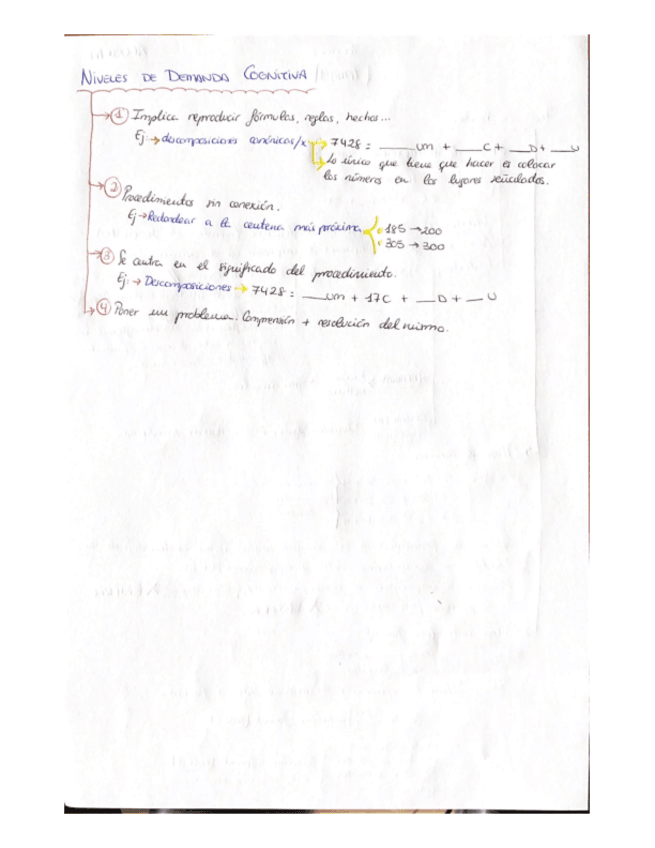 NIVELES DE DEMANDA COGNITIVA
→① Implica reproducir fórmulas, reglas, hechos...
Ej: → descomposiciones canónicas → 7428 = ____ UM + ___ C + ___ D + ___ U
→ Lo único que tiene que hacer es colocar
los números en los lugares señalados.
→② Procedimientos sin conexión.
Ej → Redondear a la centena más próxima 185 → 200
305 → 300
→③ Se centra en el significado del procedimiento.
Ej: → Descomposiciones → 7428 = ___UM + 17C + __D + __U
→④ Poner un problema. Comprensión + resolución del mismo.